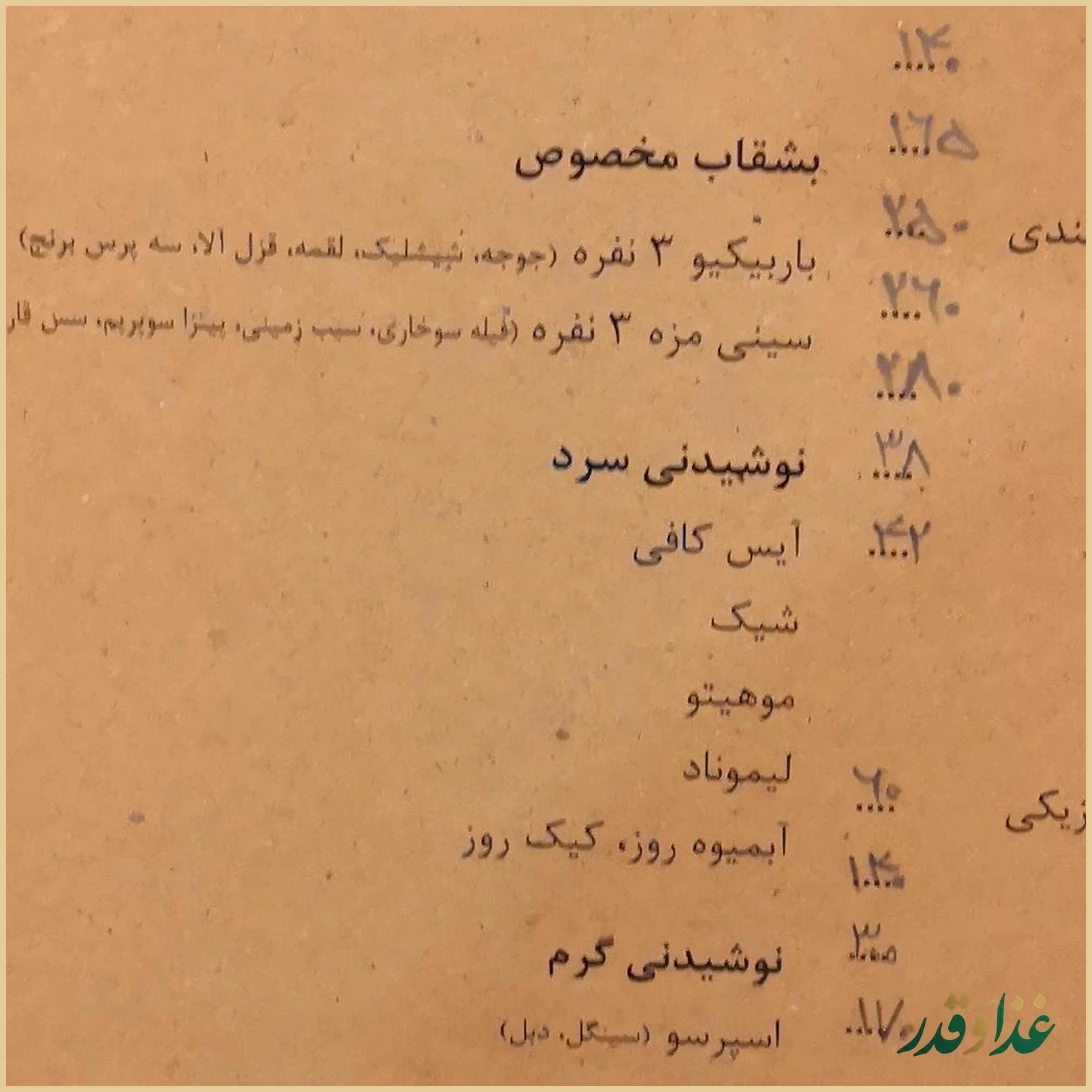 ۱۴۰
۱۶۵
بشقاب مخصوص
۲۵۰
باربیکیو ۳ نفره (جوجه، شیشلیک، لقمه، قزل آلا، سه پرس برنج)
۲۶۰
سینی مزه ۳ نفره (فیله سوخاری، سیب زمینی، پیتزا سوپریم، سس قار
۲۸۰
نوشیدنی سرد
۳۸
آیس کافی
۴۲
شیک
موهیتو
لیموناد
۶۰
آبمیوه روز، کیک روز
۱۴۰
نوشیدنی گرم
۳۰
اسپرسو (سینگل، دبل)
۱۷۰
غذا و قدر